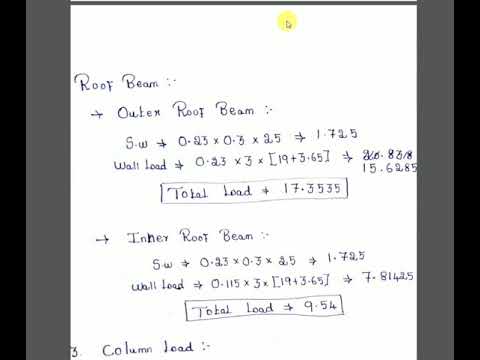 Roof Beam :-
→ Outer Roof Beam :-
S.w ⇒ 0.23 × 0.3 × 25 ⇒ 1.725
Wall Load ⇒ 0.23 × 3 × [19+3.65] ⇒
15.6285
Total Load ⇒ 17.3535
→ Inner Roof Beam :-
S.w ⇒ 0.23 × 0.3 × 25 ⇒ 1.725
Wall Load ⇒ 0.115 × 3 × [19+3.65] ⇒ 7.81425
Total Load ⇒ 9.54
3. Column Load :-